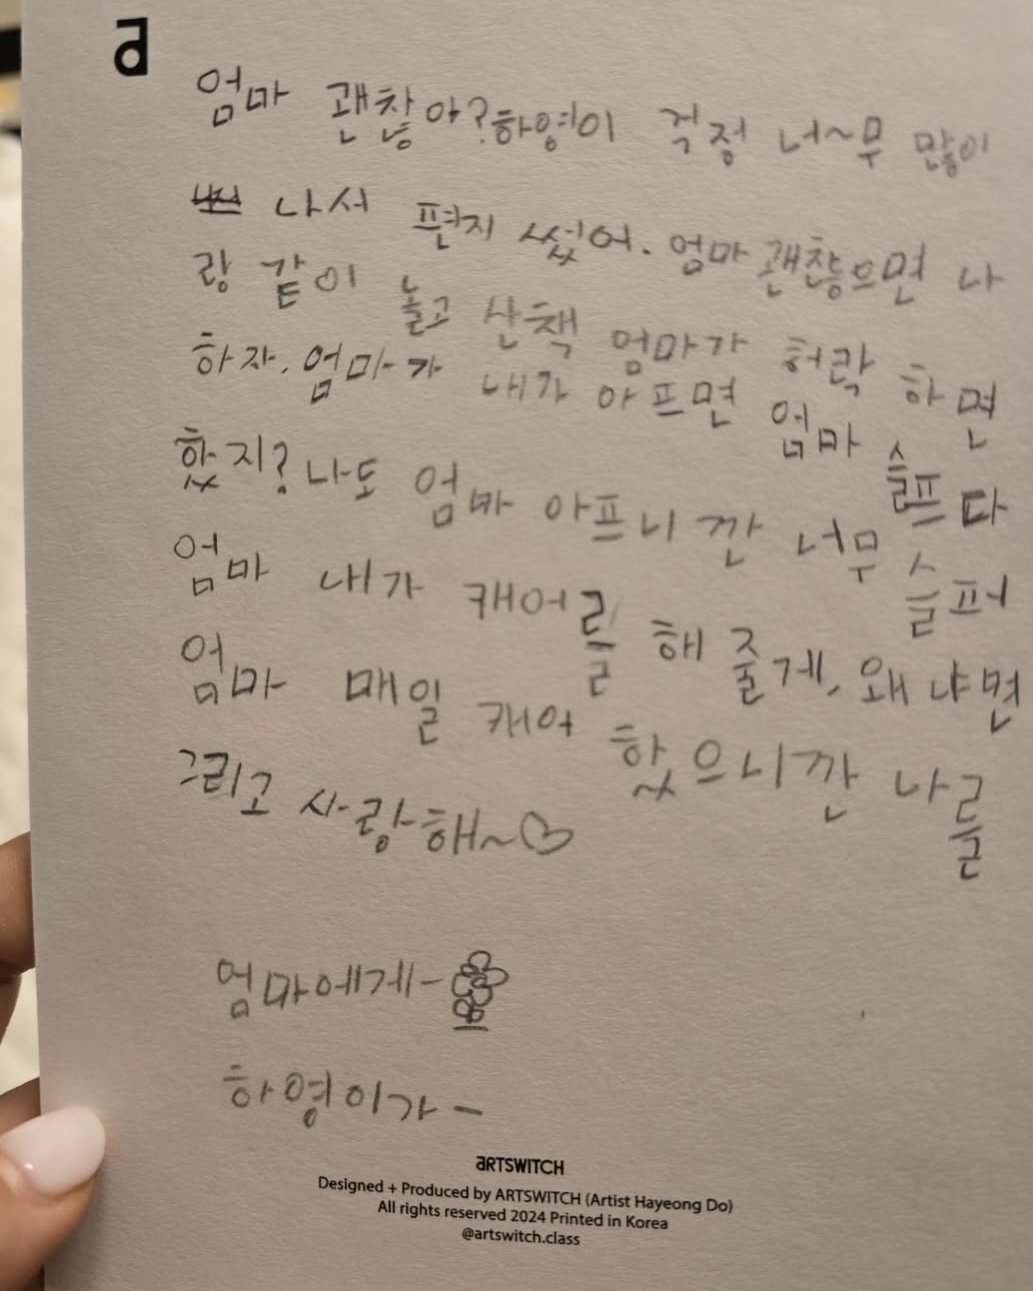 a
엄마 괜찮아? 하영이 걱정 너~무 많이
나서 편지 썼어. 엄마 괜찮으면 나
랑 같이 놀고 산책 엄마가 허락 하면
하자. 엄마가 내가 아프면 엄마 슬프다
했지? 나도 엄마 아프니깐 너무 슬퍼
엄마 내가 캐어를 해 줄게, 왜냐면
엄마 매일 캐어 핬으니깐 나를
그리고 사랑해~♡
엄마에게-
하영이가-
ARTSWITCH
Designed + Produced by ARTSWITCH (Artist Hayeong Do)
All rights reserved 2024 Printed in Korea
@artswitch.class